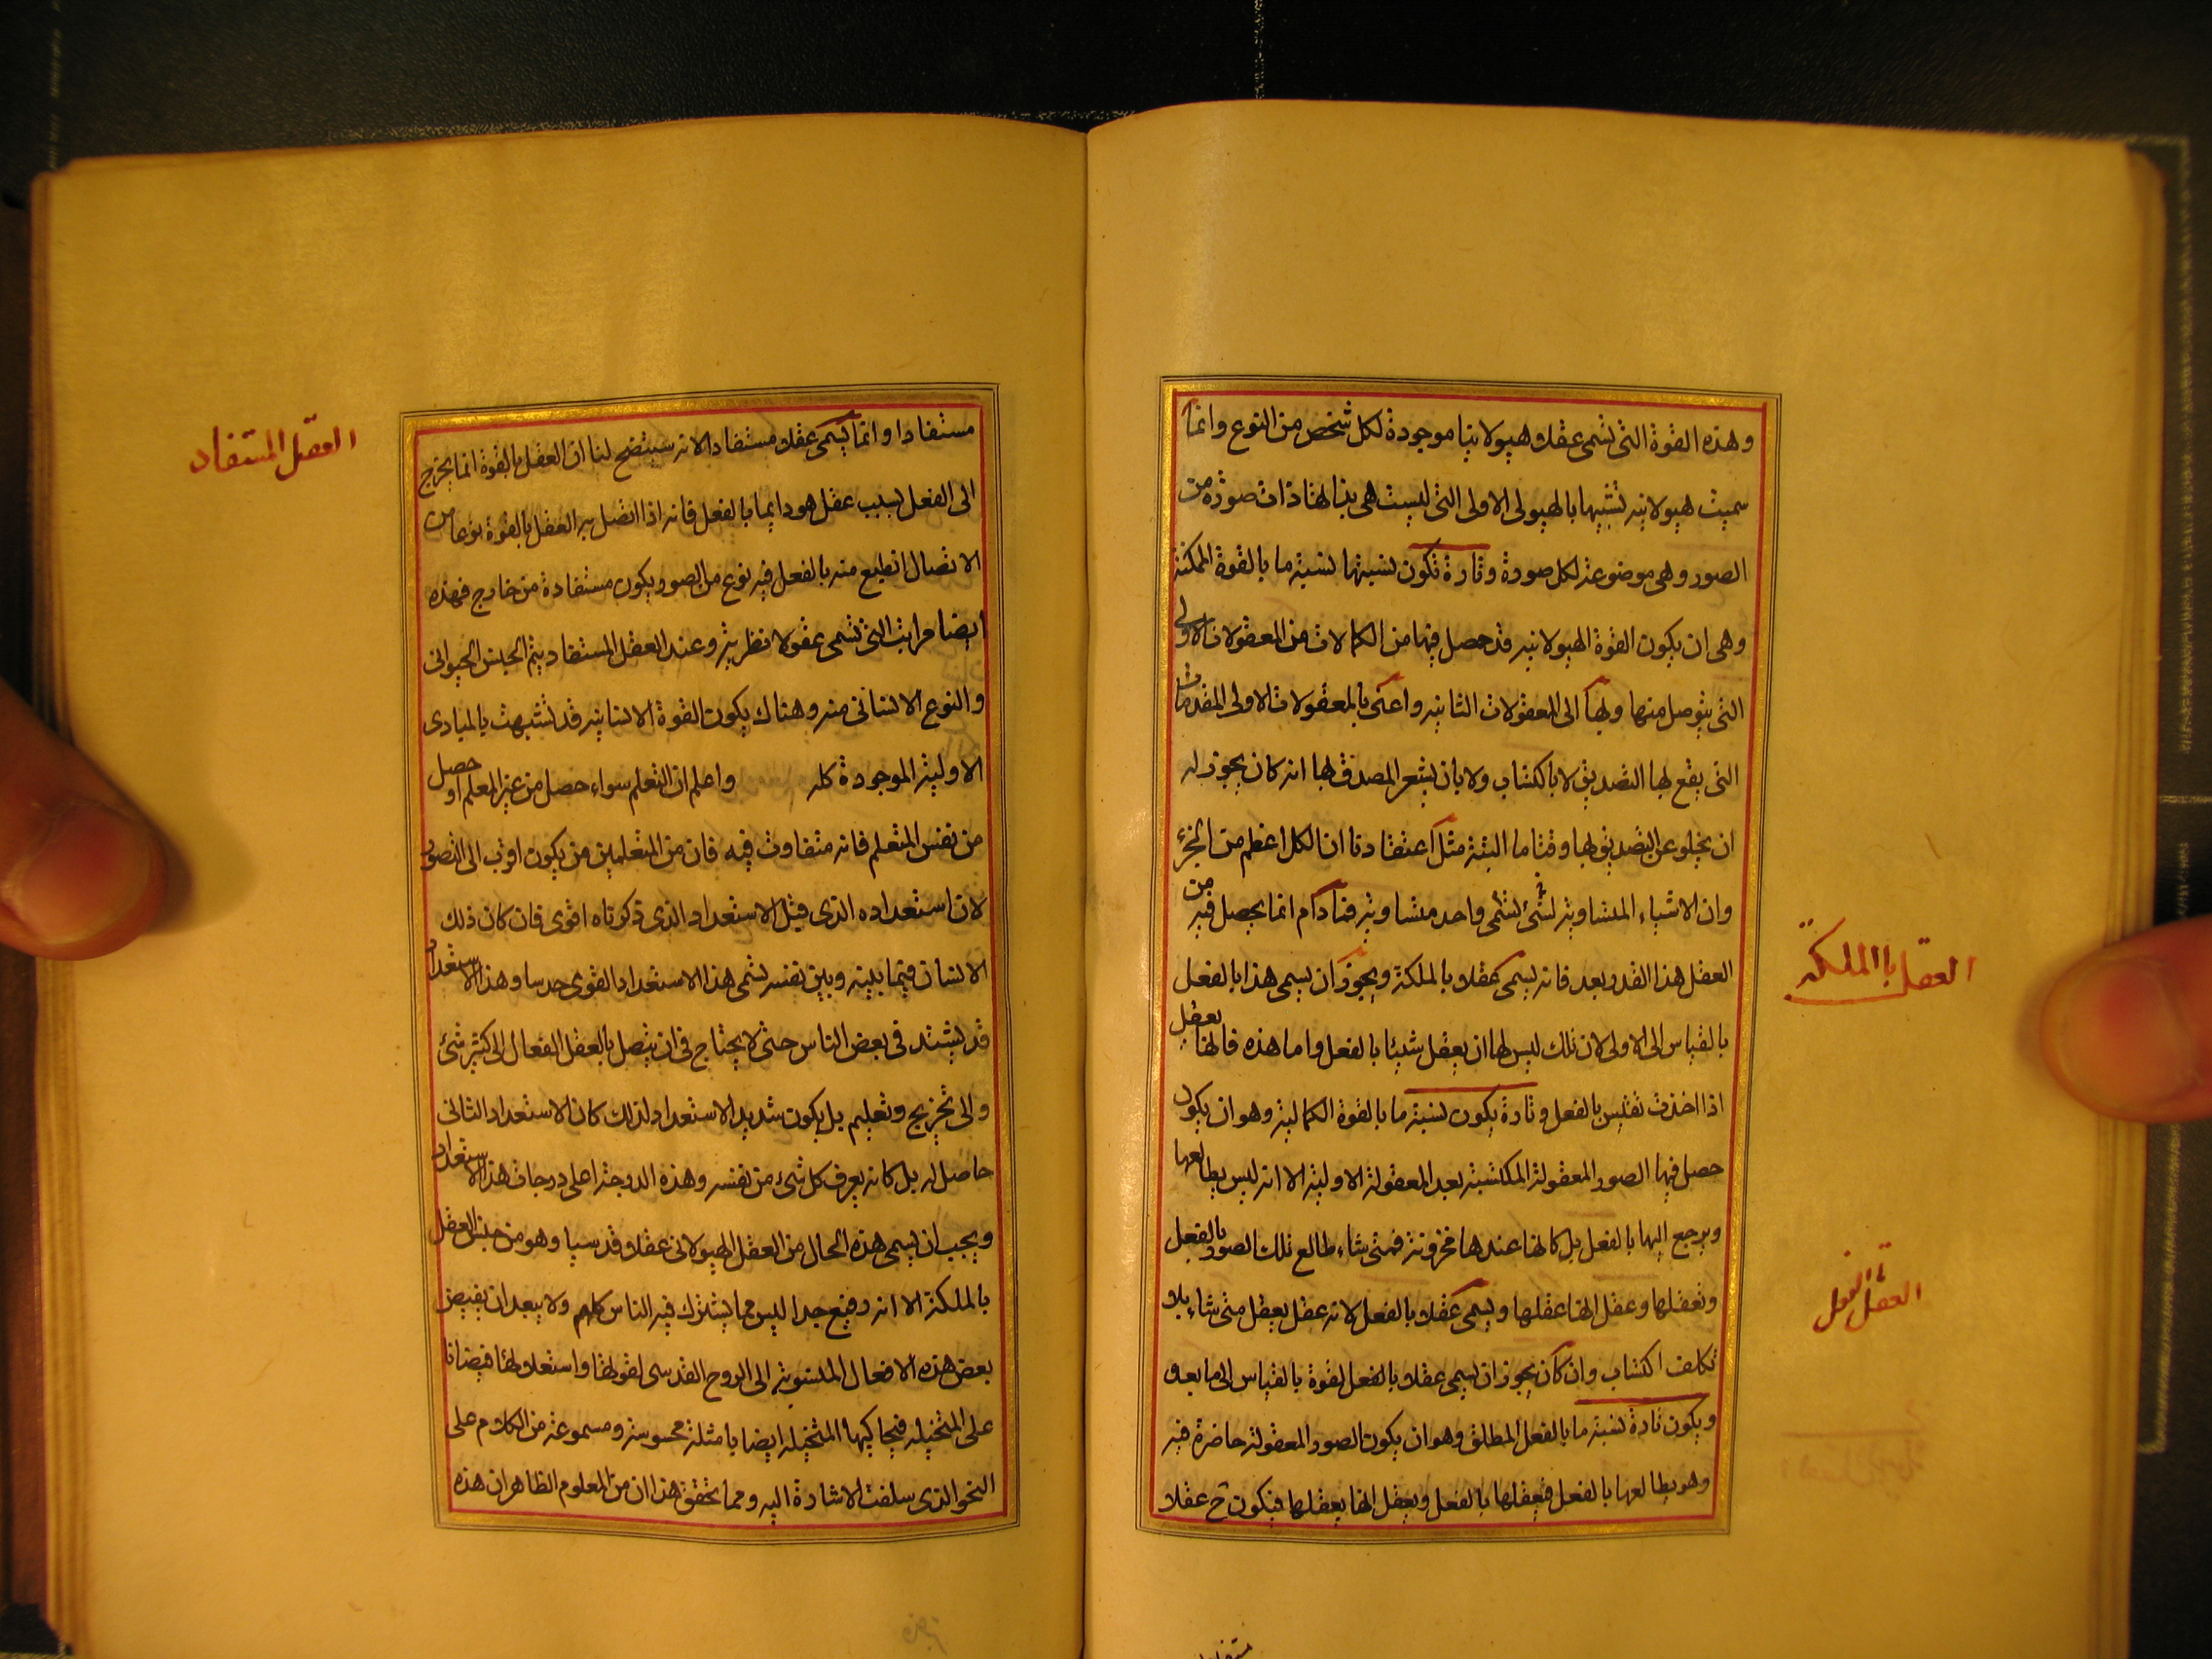 وهذه القوة التى تسمى عقلا هيولانيا موجودة لكل شخص من النوع وانما
سميت هيولانيه تشبيها بالهيولى الاولى التى ليست هى بذاتها ذات صورة من
الصور وهى موضوعة لكل صورة وتارة تكون نسبتها نسبة ما بالقوة الممكنة
وهى ان يكون القوة الهيولانيه قد حصل فيها من الكمالات من المعقولات الاولى
التى يتوصل منها وبها الى المعقولات الثانيه واعنى بالمعقولات الاولى المقدمات
التى يقع بها التصديق لا باكتساب ولا بان يشعر المصدق بها انه كان يجوز له
ان يخلو عن التصديق بها وقتا ما البتة مثل اعتقادنا ان الكل اعظم من الجزء
وان الاشياء المتساوية لشئ واحد متساوية فمادام انما يحصل فيه من
العقل هذا القدر بعد فانه يسمى عقلا بالملكة ويجوز ان يسمى هذا بالفعل
بالقياس الى الاولى لان تلك ليس لها ان يعقل شيئا بالفعل واما هذه فانها يعقل
اذا اخذت تقيس بالفعل وتارة يكون نسبة ما بالقوة الكمالية وهو ان يكون
حصل فيها الصور المعقولة المكتسبة بعد المعقولة الاولية الا انه ليس يطالعها
ويرجع اليها بالفعل بل كانها عنده مخزونة فمتى شاء طالع تلك الصور بالفعل
وتعقلها وعقل انها عقلها ويسمى عقلا بالفعل لانه عقل يعقل متى شاء بلا
تكلف اكتساب وان كان يجوز ان يسمى عقلا بالفعل بالقوة بالقياس الى ما بعده
ويكون تارة نسبة ما بالفعل المطلق وهو ان يكون الصور المعقولة حاضرة فيه
وهو يطالعها بالفعل فيعقلها بالفعل ويعقل انها يعقلها فيكون ح عقلا
العقل باالملكة
العقل بالفعل
مستفادا وانما يسمى عقلا مستفادا لانه سيتضح لنا ان العقل بالقوة انما يخرج
الى الفعل بسبب عقل هو دايما بالفعل فانه اذا اتصل به العقل بالقوة نوعا من
الاتصال انطبع منه بالفعل فيه نوع من الصور يكون مستفادة من خارج فهذه
ايضا مراتب التى تسمى عقولا نظرية وعند العقل المستفاد يتم الجنس الحيوانى
والنوع الانسانى منه وهناك يكون القوة الانسانيه قد تشبهت بالمبادى
الاولية الموجودة كله واعلم ان التعلم سواء حصل من غير المعلم او حصل
من نفس المتعلم فانه متفاوت فيه فان من المتعلمين من يكون اقرب الى التصور
لان استعداده الذى قبل الاستعداد الذى ذكرناه اقوى فان كان ذلك
الانسان فيما بينه وبين نفسه يسمى هذا الاستعداد القوى حدسا وهذا الاستعداد
قد يشتد فى بعض الناس حتى لا يحتاج فى ان يتصل بالعقل الفعال الى كثير شئ
والى تخريج وتعليم بل يكون شديد الاستعداد لذلك كان الاستعداد الثانى
حاصل له بل كانه يعرف كل شئ من نفسه وهذه الدرجة اعلى درجات هذا الاستعداد
ويجب ان يسمى هذه الحال من العقل الهيولانى عقلا قدسيا وهو من جنس العقل
بالملكة الا انه رفيع جدا ليس مما يشترك فيه الناس كلهم ولا يبعد ان يفيض
بعض هذه الافعال المنسوبة الى الروح القدسى لقوتها واستعلائها فيضانا
على المتخيله فيحاكيها المتخيله ايضا بامثلة محسوسة ومسموعة من الكلام على
النحو الذى سلفت الاشارة اليه ومما يحقق هذا ان من المعلوم الظاهر ان هذه
العقل المستفاد